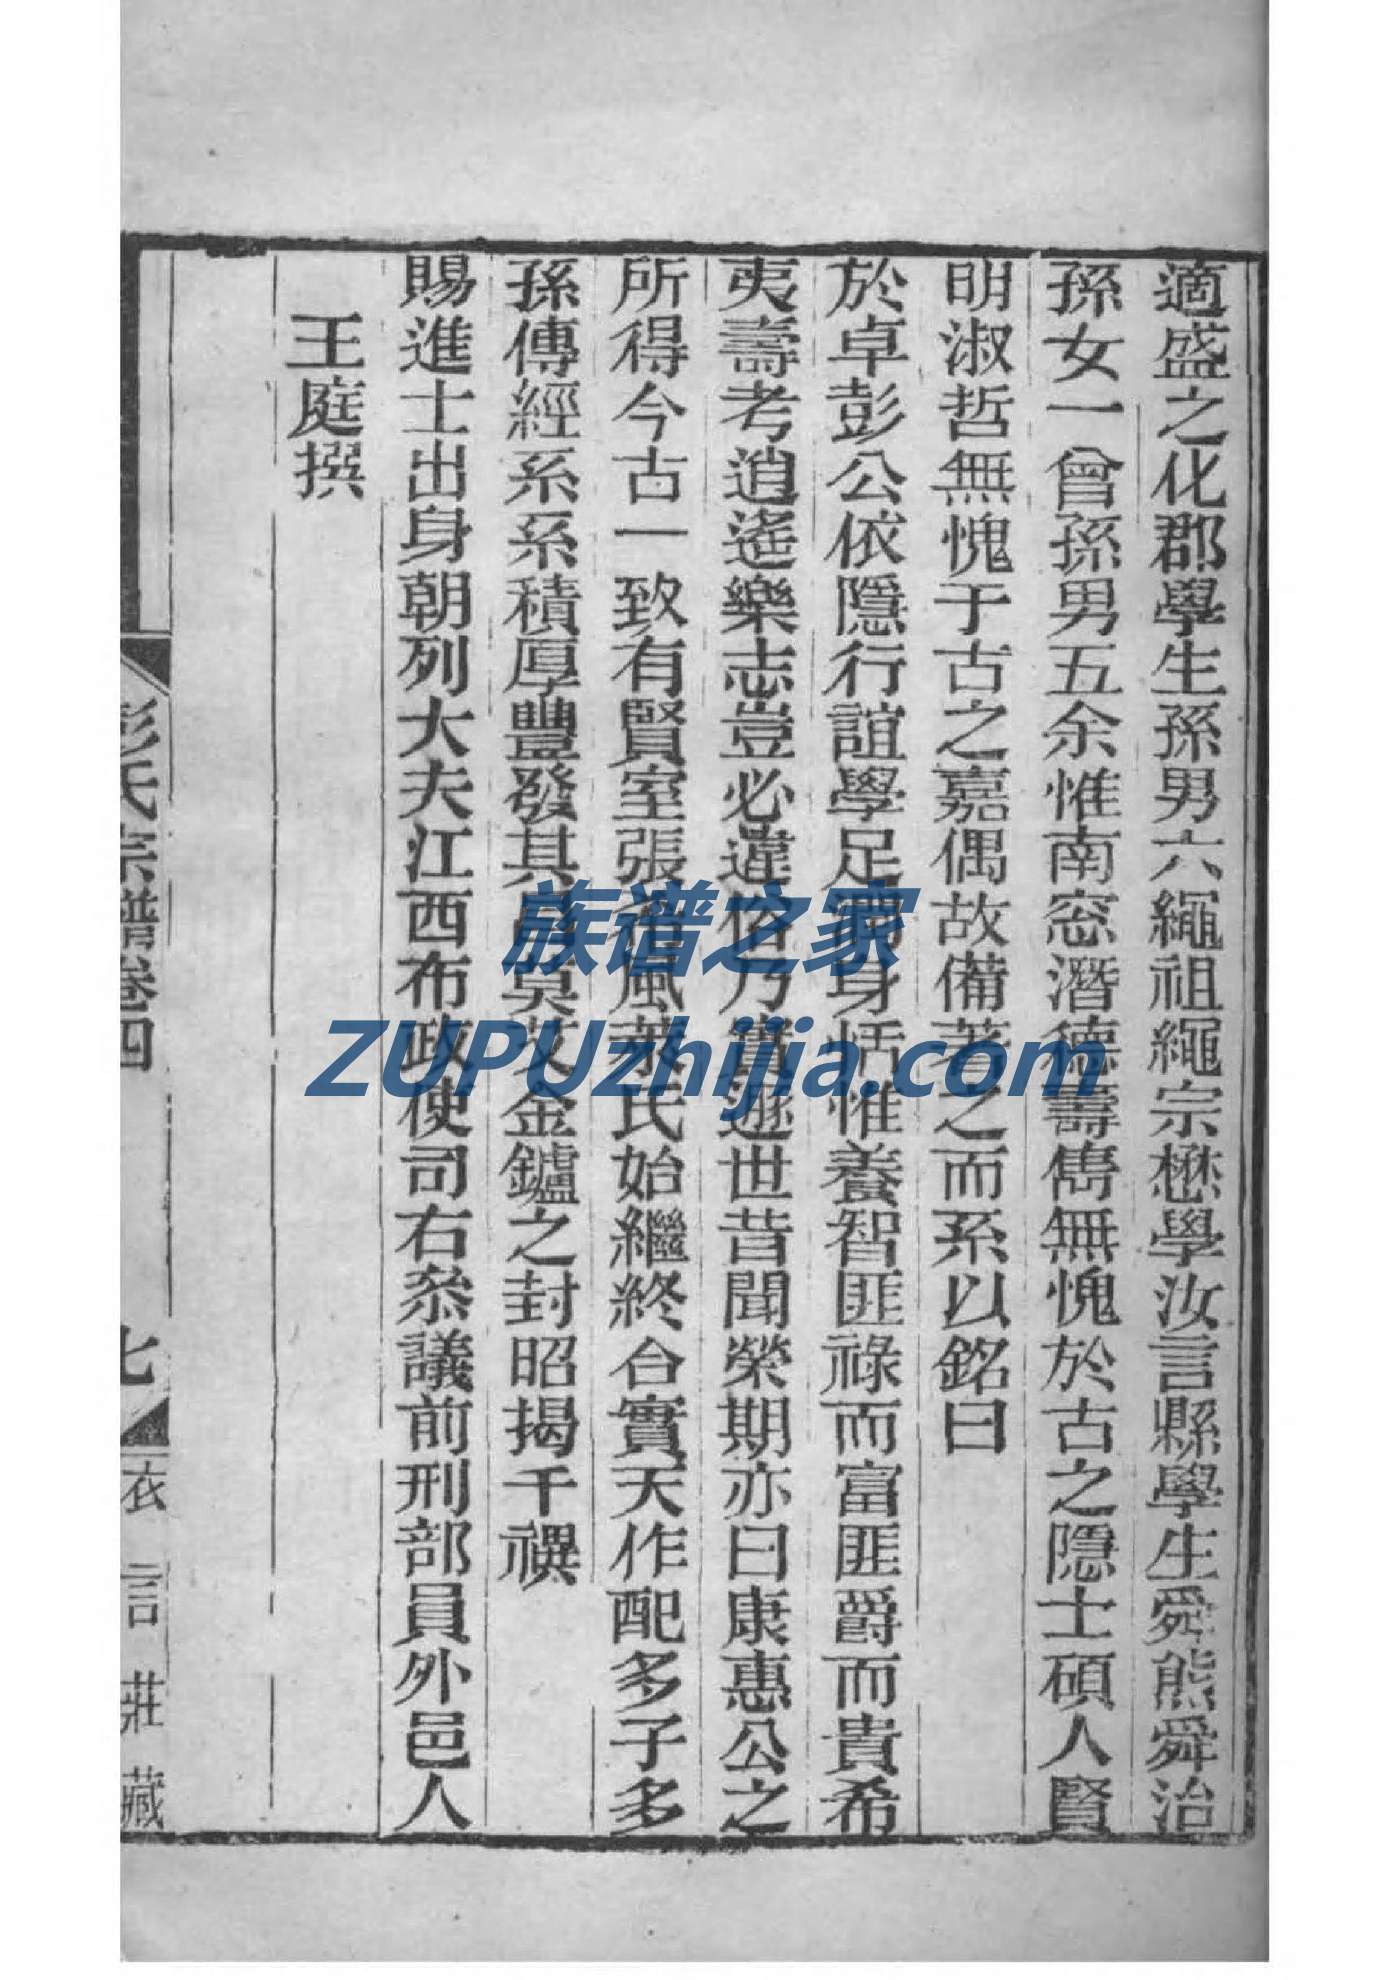 適盛之化郡學生孫男六繩祖繩宗懋學汝言縣學生舜熊舜治
孫女一曾孫男五余惟南窓潛德壽雋無愧於古之隱士碩人賢
明淑哲無愧于古之嘉偶故備著之而系以銘曰
於卓彭公依隱行誼學足身恬惟養智匪祿而富匪爵而貴希
夷壽考逍遙樂志豈必違俗乃實遯世昔聞榮期亦曰康惠公之
所得今古一致有賢室張風萊氏始繼終合實天作配多子多
孫傳經系系積厚豐發其莫艾金鑪之封昭揭千禩
賜進士出身朝列大夫江西布政使司右叅議前刑部員外邑人
王庭撰
彭氏宗譜卷四
七
衣言莊藏
族谱之家
ZUPUzhijia.com